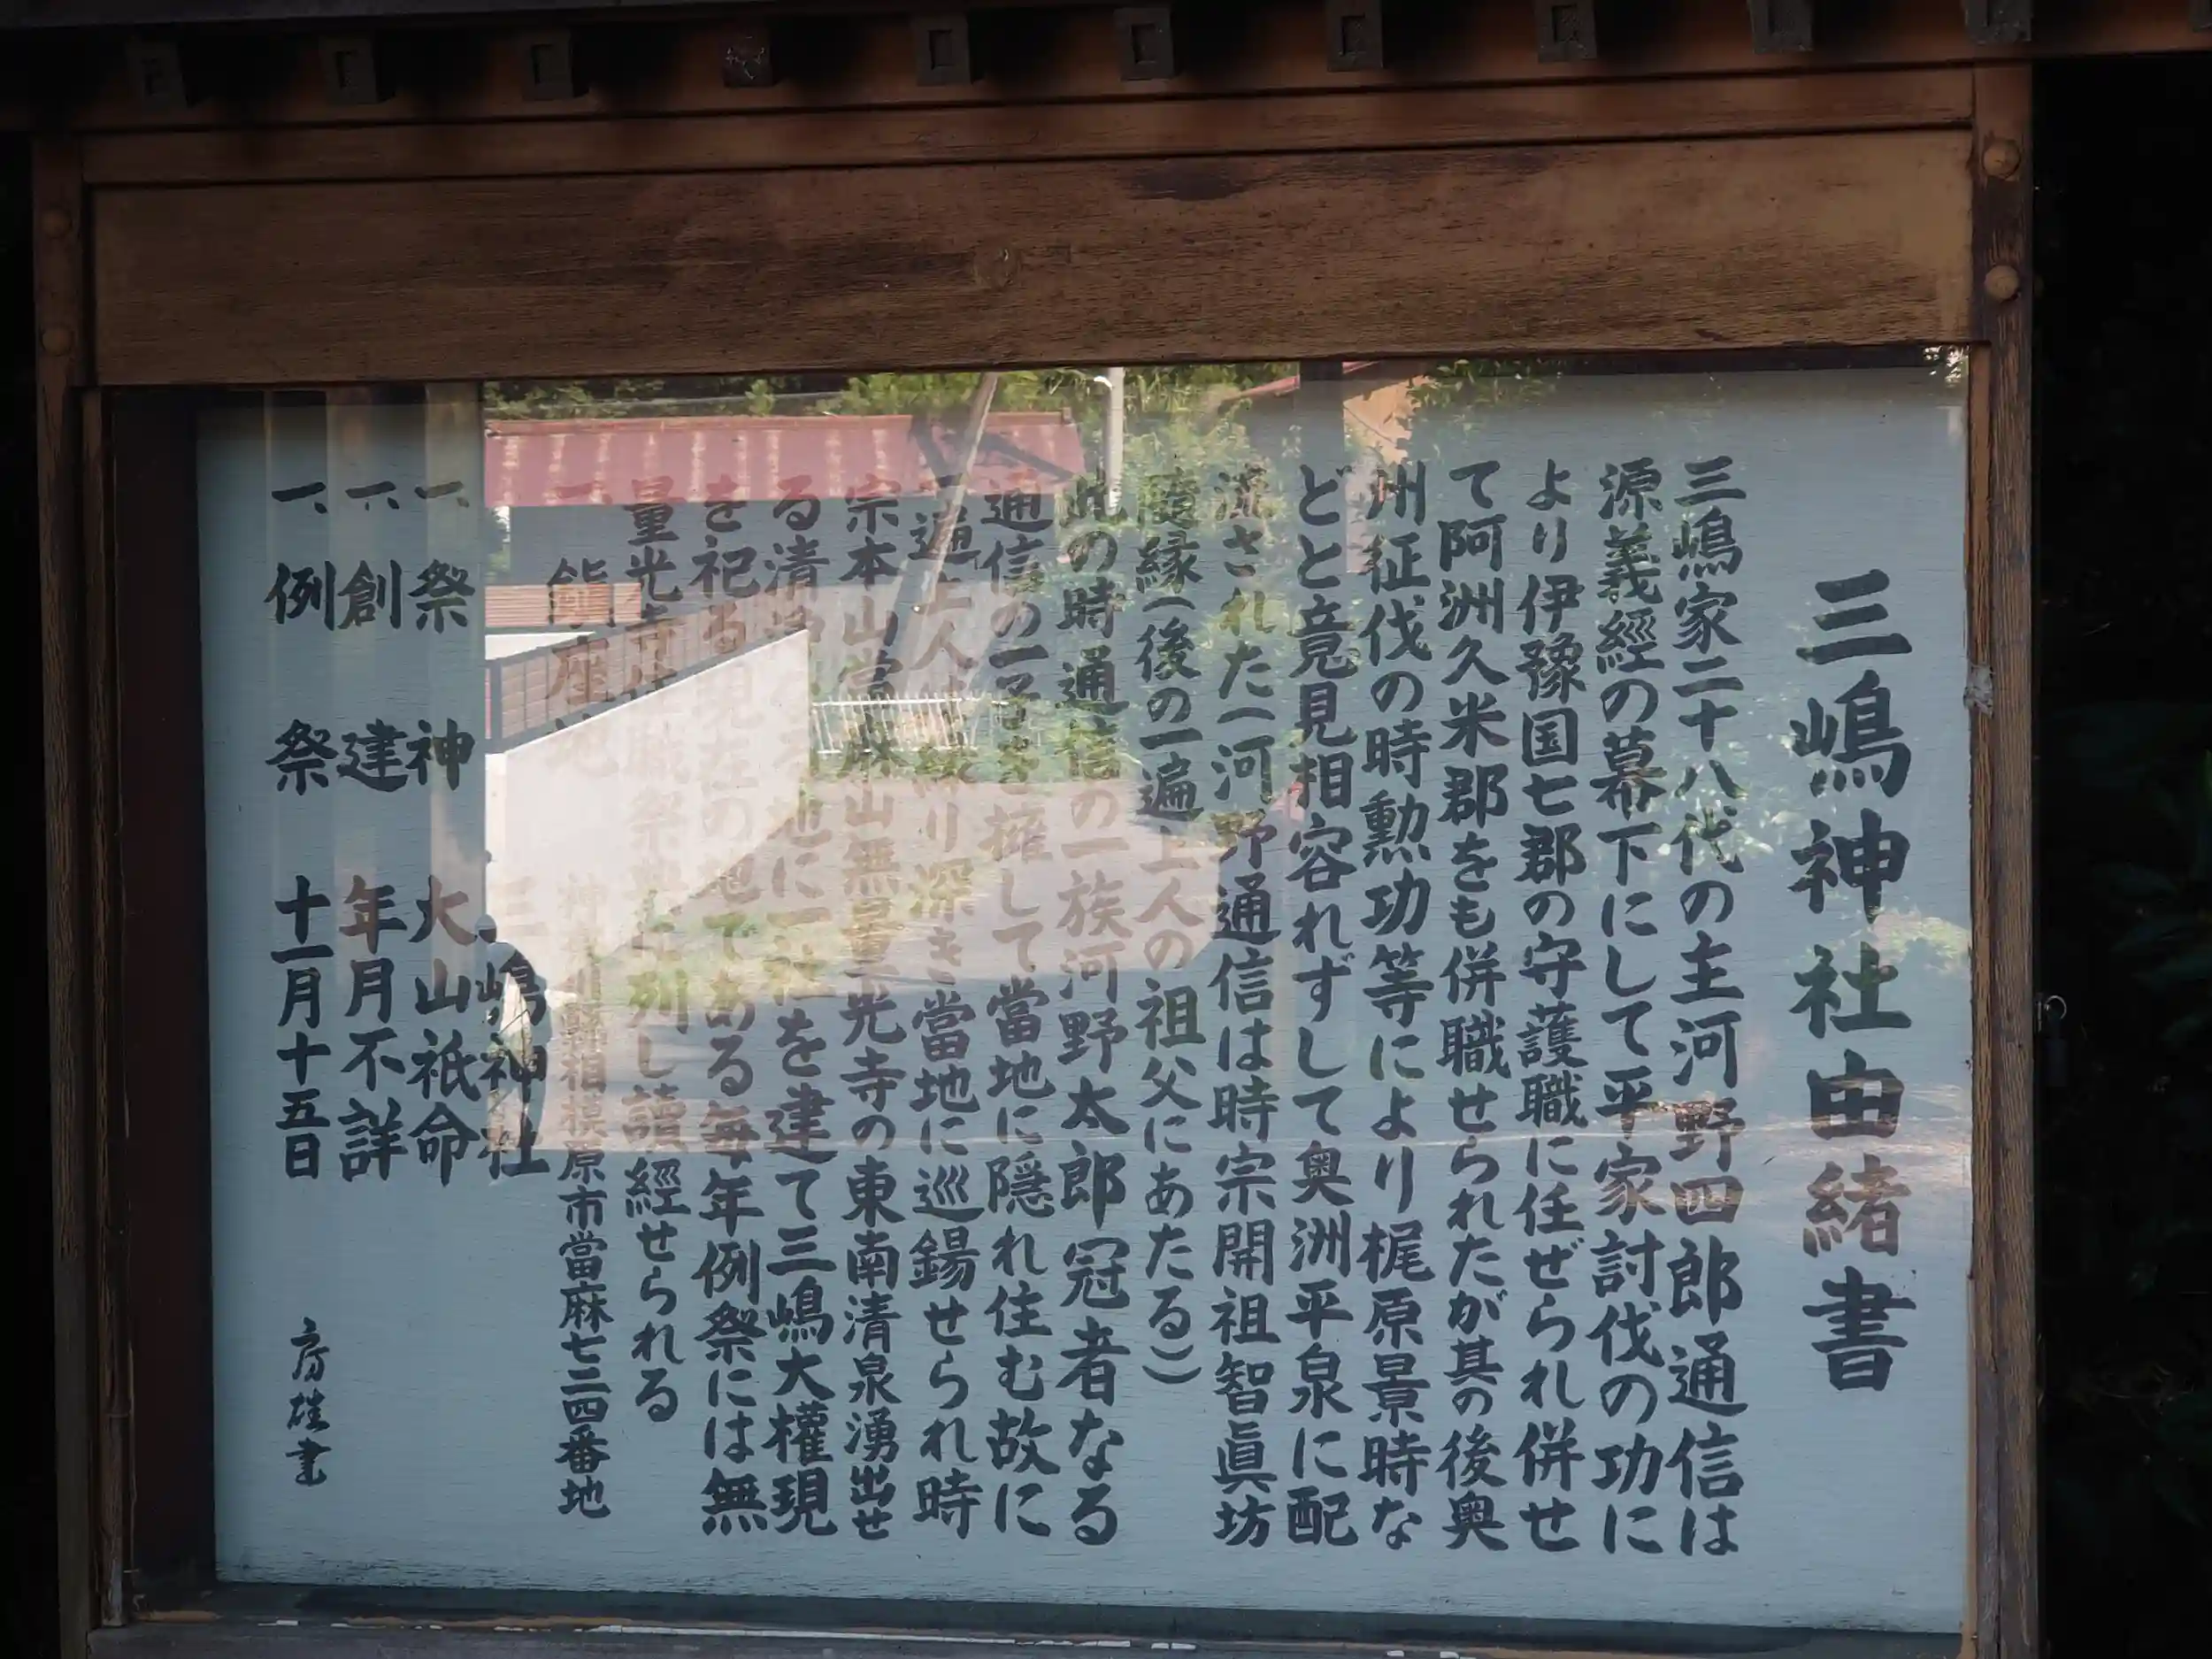 三嶋神社由緒書
三嶋家二十八代の主河野四郎通信は
源義經の幕下にして平家討伐の功に
より伊豫国七郡の守護職に任ぜられ併せ
て阿洲久米郡をも併職せられたが其の後奥
州征伐の時勲功等により梶原景時な
どと意見相容れずして奥洲平泉に配
流された(河野通信は時宗開祖智眞坊
随縁(後の一遍上人の祖父にあたる))
此の時通信の一族河野太郎冠者なる
通信の一子を擁して當地に隠れ住む故に
一遍上人は深き當地に巡錫せられ時
宗本山當麻山無量光寺の東南清泉湧出せ
る清浄なる地に一社を建て三嶋大權現
を祀る現在の地である毎年例祭には無
量光寺住職祭典に列し讀經せられる
一、鎮座地 神奈川縣相模原市當麻七二四番地
三嶋神社
一、祭神 大山祇命
一、創建 年月不詳
一、例祭 十一月十五日
房雄書